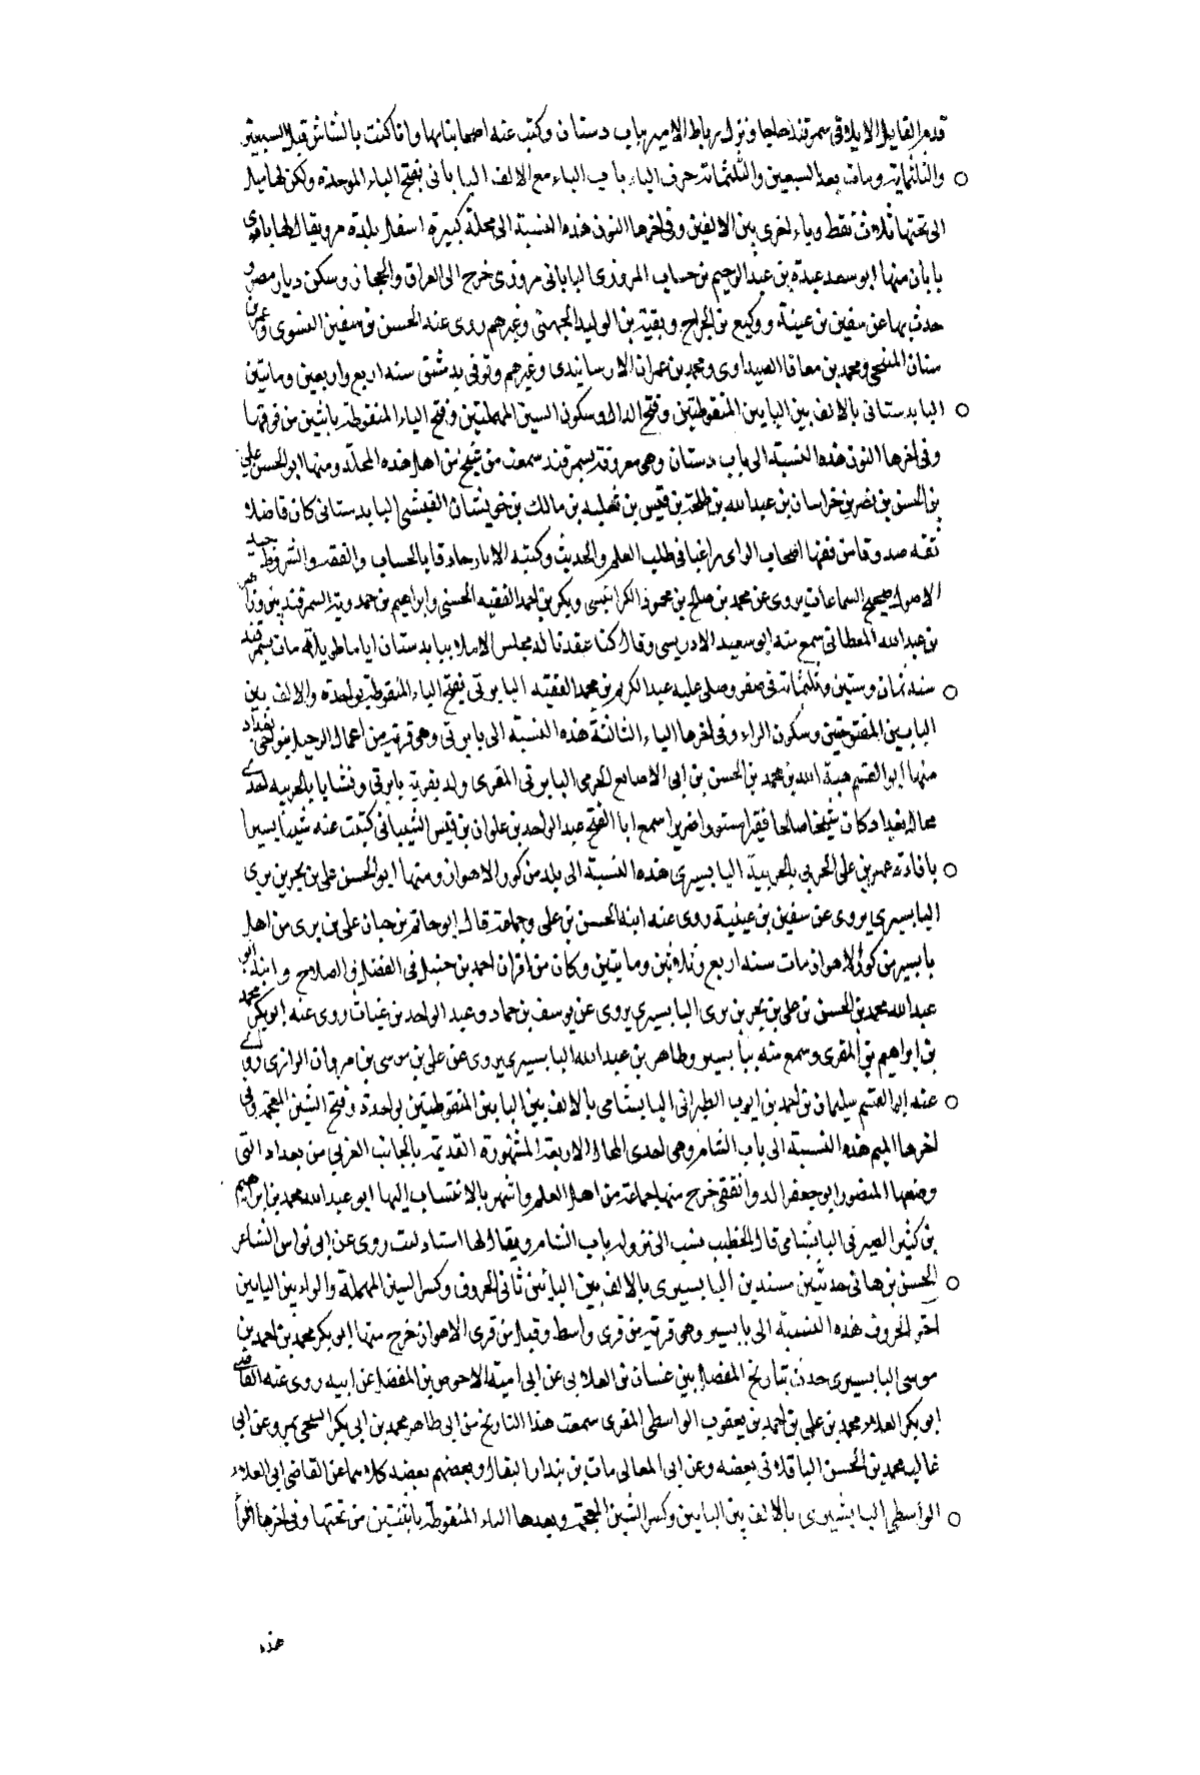 قدم القايد الايلاقى سمرقند حاجا ونزل برباط الامير باب دستان وكتب عنه اصحابنا بها وانا كنت بالشاش قبل السبعين
والثلثماية ومات بعد السبعين والثلثماية حرف الباء باب الباء مع الالف الباباني بفتح الباء الموحدة ولكن لها ميل
الى تحتها ثلاث نقط وباء اخرى بين الالفين وفى اخرها النون هذه النسبة الى محلة كبيرة اسفل بلدة مرو يقال لها
بابان منها ابو سعد عبدة بن عبد الرحيم بن حسان المروزى الباباني مروزى خرج الى العراق والحجاز وسكن ديار مصر و
حدث بها عن سفين بن عيينة ووكيع بن الجراح وبقية بن الوليد الجهني وغيرهم روى عنه الحسن بن سفين النسوى وعمر بن
سنان المنبجي ومحمد بن معافا الصيداوى ومحمد بن عمران الارسابندى وغيرهم وتوفي بدمشق سنه اربع واربعين ومايتين
البابدستانى بالالف بين البايين المنقوطتين وفتح الدال وسكون السين المهملتين وفتح التاء المنقوطة باثنين من فوقها
وفى اخرها النون هذه النسبة الى باب دستان وهى معروفة بسمرقند سمعت من شيخ من اهل هذه المحلة ومنها ابو الحسن على
بن الحسن بن نصر بن خراسان بن عبد الله بن طلحة بن قيس بن ثعلبه بن مالك بن خويشان البابدستانى كان فاضلا
ثقه صدوقا من فقها اصحاب الراى راغبا فى طلب العلم والحديث وكتبه الاثار حاذقا بالحساب والفقه والشروط جيد
الاصول صحيح السماعات يروى عن محمد بن صالح بن محمود الكرابيسى وبكر بن احمد الفقيه الحسنى وابراهيم بن حمدويه السمرقنديين
بن عبد الله سمع منه ابو سعيد الادريسى وقال كنا عقدنا له مجلس الاملا بباب دستان اياما طويلة مات بسمرقند
سنه ثمان وستين وثلثمائة فى صفر وصلى عليه عبد الكريم بن محمد الفقيه البابرتى بفتح الباء المنقوطة بواحدة والالف بين
البابين المفتوحتين وسكون الراء وفى اخرها التاء الثالثة هذه النسبة الى بابرتى وهى قرية من اعمال الدجيل بنواحى بغداد
منها ابو القسم هبة الله بن محمد بن الحسن بن ابى الاصابع الحرمى البابرتى المقرى ولد بقرية بابرتى ونشا بالحربيه احدى
محال بغداد كان شيخا صالحا فقيرا مستورا ضريرا سمع ابا الفتح عبد الواحد بن علوان بن قيس الشيباني كتبت عنه شيئا يسيرا
بافادة عمر بن على الحربي بالحربية البابسيرى هذه النسبة الى بلد من كور الاهواز ومنها ابو الحسن على بن بحر بن برى
البابسيرى يروى عن سفين بن عيينة روى عنه ابنه الحسن بن على وجماعة قال ابو حاتم بن حبان على بن برى من اهل
بابسير من كور الاهواز مات سنه اربع وثلاثين ومايتين وكان من اقران احمد بن حنبل فى الفضل والصلاح وابنه ابو
عبد الله محمد بن الحسن بن على بن بحر بن برى البابسيري يروى عن يوسف بن حماد وعبد الواحد بن غياث روى عنه ابو بكر محمد
بن ابراهيم بن المقرى وسمع منه ببابسير وطاهر بن عبد الله البابسيرى يروى عن على بن موسى بن مروان الرازى روى
عنه ابو القسم سليمان بن احمد بن ايوب الطبرانى البابشامى بالالف بين البابين المنقوطتين بواحدة وفتح الشين المعجمة وفي
اخرها الميم هذه النسبة الى باب الشام وهى احدى المحال الاربعة المشهورة القديمة بالجانب الغربي من بغداد التى
وضعها المنصور ابو جعفر الدوانقى خرج منها جماعة من اهل العلم واشهر بالانتساب اليها ابو عبد الله محمد بن ابرهيم
بن كثير الصيرفى البابشامى قال الخطيب نسب الى نزوله باب الشام ويقال لها استاد ليث روى عن ابى نواس الشاعر
الحسن بن هانى حديثين مسندين البابسيرى بالالف بين البائين ثانى الحروف وكسر السين المهملة والراء بين اليايين
اخر الحروف هذه النسبة الى بابسير وهى قرية من قرى واسط وقيل من قرى الاهواز خرج منها ابو بكر محمد بن احمد بن
موسى البابسيرى حدث بتاريخ المفضل بن غسان بن الغلابى عن ابى امية الاحوص بن المفضل عن ابيه روى عنه القاضى
ابو بكر العلاء محمد بن على بن احمد بن يعقوب الواسطى المقرى سمعت هذا التاريخ من ابى طاهر محمد بن ابى بكر السنجى بمرو عن ابى
غالب محمد بن الحسن الباقلانى بعضه وعن ابى المعالى ثابت بن بندار البقال وبعضهم بعضه كلاهما عن القاضى ابى العلاء
الواسطى البابشيرى بالالف بين البابين وكسر الشين المعجمة وبعدها الياء المنقوطة باثنتين من تحتها وفى اخرها الراء
هذه